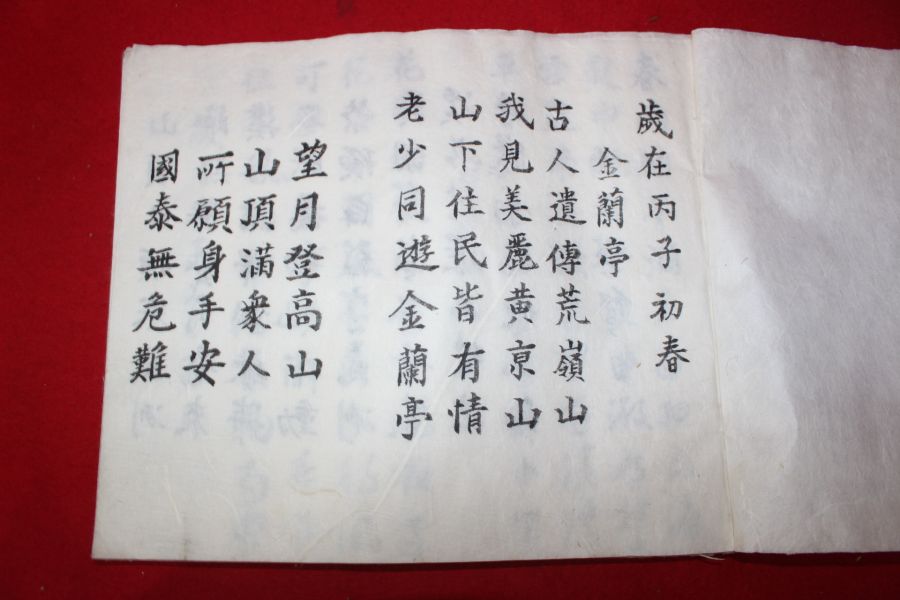 歲在丙子初春
金蘭亭
古人遺傳荒嶺山
我見美麗黄亰山
山下住民皆有情
老少同遊金蘭亭
望月登高山
山頂滿衆人
所願身手安
國泰無危難